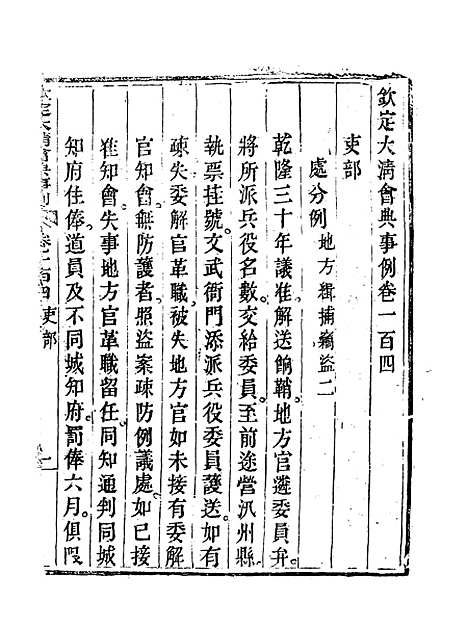 欽定大清會典事例卷一百四
吏部
處分例 地方緝捕竊盜二
乾隆三十年議准解送餉鞘地方官遴委員弁
將所派兵役名數交給委員至前途營汛州縣
執票挂號文武衙門添派兵役委員護送如有
疎失委解官革職被失地方官如未接有委解
官知會無防護者照盜案疎防例議處如已接
准知會失事地方官革職留任同知通判同城
知府住俸道員及不同城知府罰俸六月俱限
欽定大清會典事例 卷一百四 吏部 一